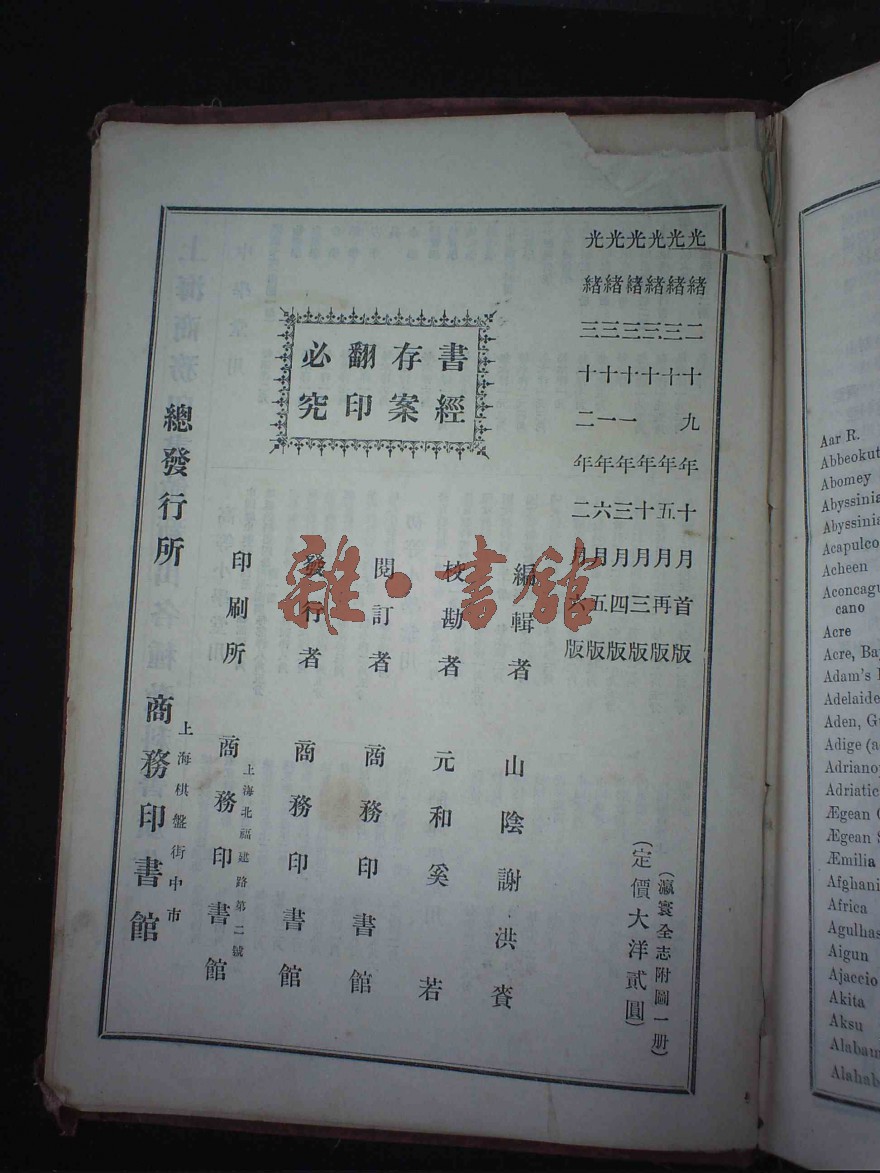 光緒二十九年十月首版
光緒三十年五月再版
光緒三十年十月三版
光緒三十一年三月四版
光緒三十一年六月五版
光緒三十二年二月六版
(瀛寰全志附圖一册)
(定價大洋貳圓)
書經
存案
翻印
必究
編輯者 山陰謝洪賚
校勘者 元和奚若
閱訂者 商務印書館
發行者 商務印書館
印刷所 上海北福建路第二號 商務印書館
總發行所 上海棋盤街中市 商務印書館
雜·書館
Aar R.
Abbeokut
Abomey
Abyssinia
Abyssinia
Acapulco
Acheen
Aconcagu
cano
Acre
Acre, Ba
Adam's
Adelaide
Aden, G
Adige (a
Adriano
Adriatic
Ægean
Ægean
Æmilia
Afghani
Africa
Agulhas
Aigun
Ajaccio
Akita
Aksu
Alabam
Alahab